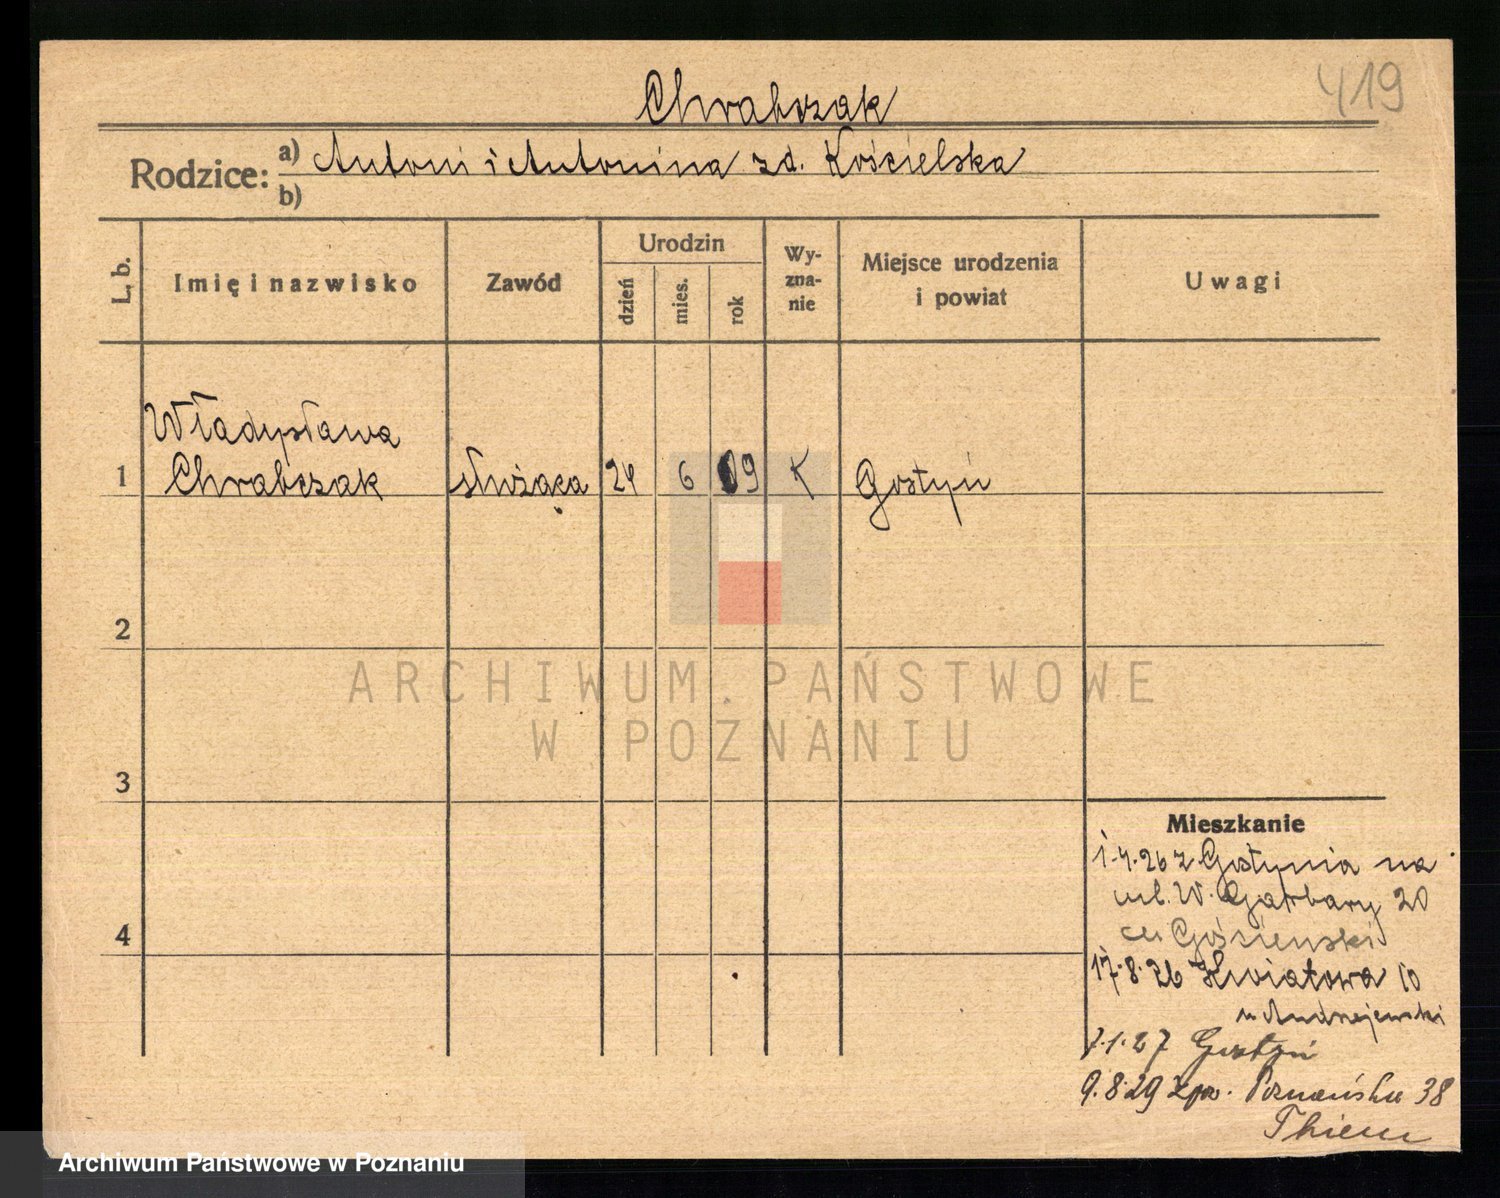 419
Chrabczak
Rodzice: a) Antoni i Antonina zd. Kościelska
b)
L. b. Imię i nazwisko Zawód Urodzin dzień mies. rok Wyznanie Miejsce urodzenia i powiat Uwagi
Władysława
1 Chrabczak służąca 24 6 09 K Gostyń
2
ARCHIWUM PAŃSTWOWE
W POZNANIU
3
Mieszkanie
1.4.26 z Gostynia na
ul. W. Garbary 20
4
17.8.26 Kwiatowa 10
u Andrzejewski
7.1.27 Gostyń
9.8.29 Poznańska 38
Thiem
Archiwum Państwowe w Poznaniu